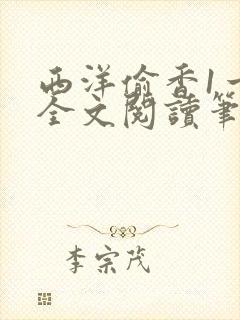 西洋偷香1一
全文閱讀筆
李宗茂